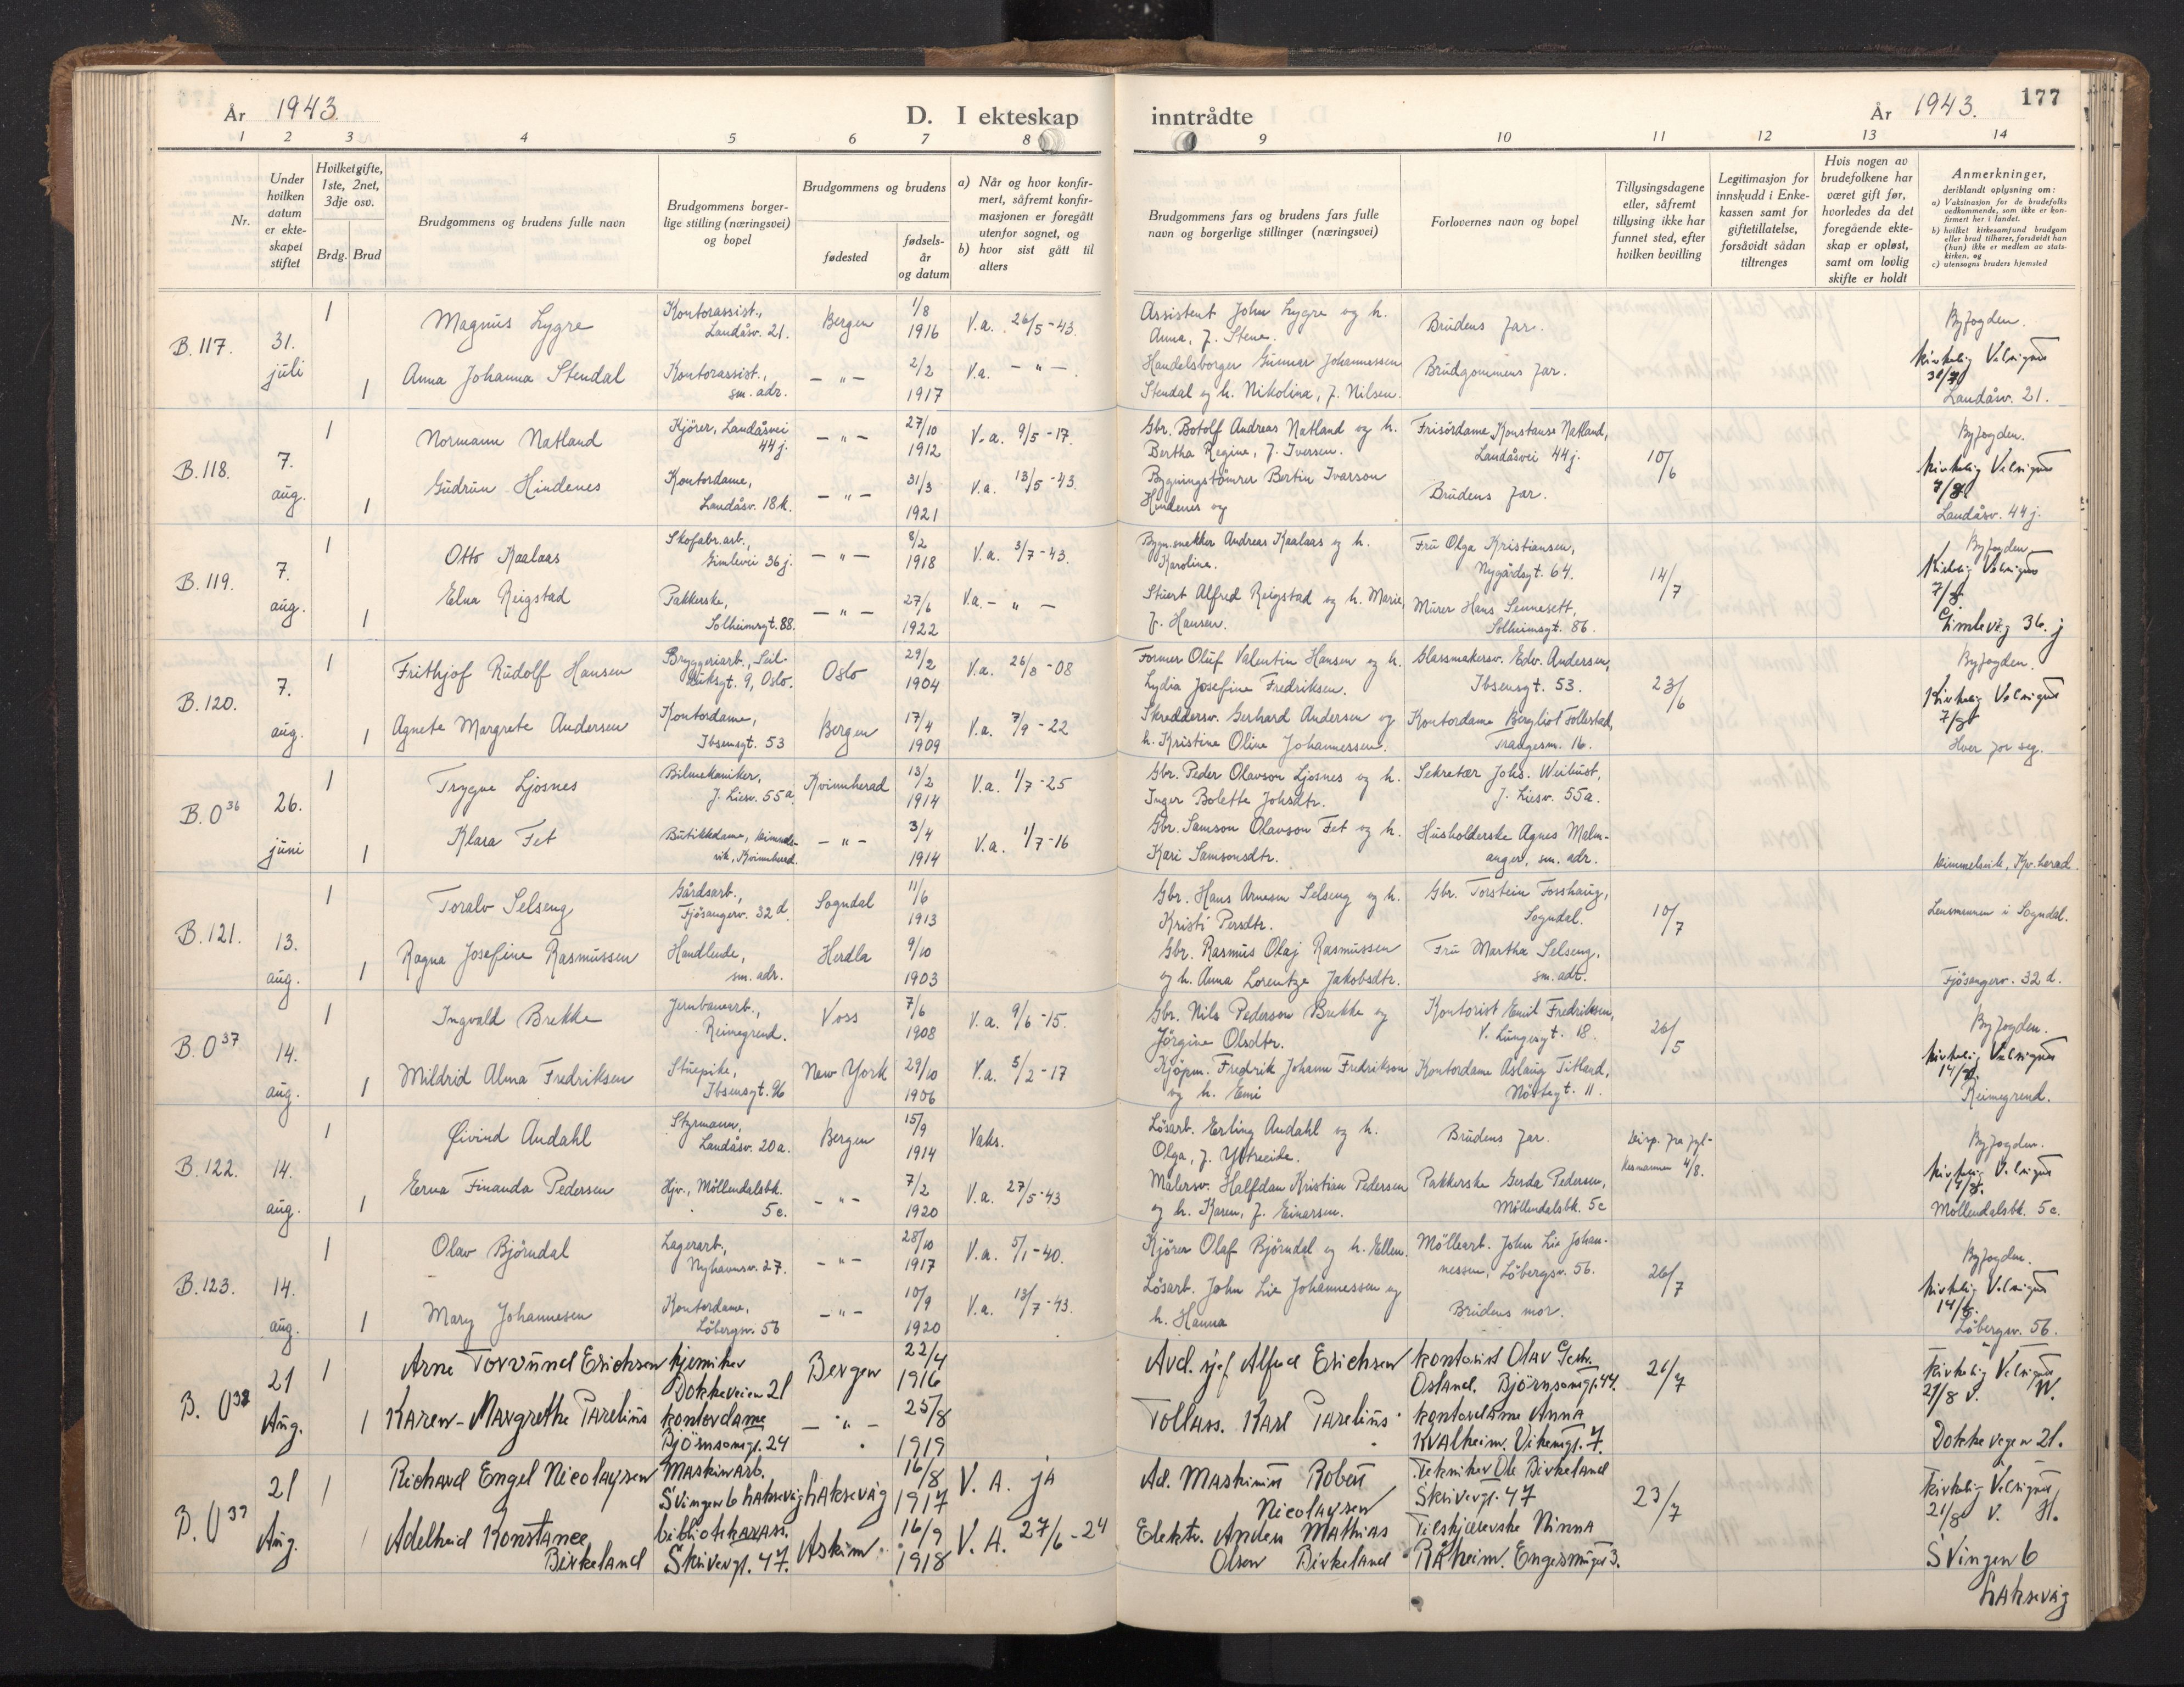 År 1943. D. I ekteskap inntrådte År 1943. 177
1 2 3 4 5 6 7 8 9 10 11 12 13 14
Nr.
Under hvilken datum er ekteskapet stiftet
Hvilketgifte, 1ste, 2net, 3dje osv.
Brdg. Brud
Brudgommens og brudens fulle navn
Brudgommens borgerlige stilling (næringsvei) og bopel
Brudgommens og brudens
fødested
fødselsår og datum
a) Når og hvor konfirmert, såfremt konfirmasjonen er foregått utenfor sognet, og
b) hvor sist gått til alters
Brudgommens fars og brudens fars fulle navn og borgerlige stillinger (næringsvei)
Forlovernes navn og bopel
Tillysingsdagene eller, såfremt tillysing ikke har funnet sted, efter hvilken bevilling
Legitimasjon for innskudd i Enkekassen samt for giftetillatelse, forsåvidt sådan tiltrenges
Hvis nogen av brudefolkene har været gift før, hvorledes da det foregående ekteskap er opløst, samt om lovlig skifte er holdt
Anmerkninger,
deriblandt oplysning om:
a) Vaksinasjon for de brudefolks vedkommende, som ikke er konfirmert her i landet.
b) hvilket kirkesamfund brudgom eller brud tilhører, forsåvidt han (hun) ikke er medlem av statskirken, og
c) utensogns bruders hjemsted
B. 117. 31. juli 1 Magnus Lygre Kontorassist., Landåsv. 21. Bergen 1/8 1916 V.a. 26/5-43. Assistent John Lygre og h. Anna, f. Stene. Brudens far. Byfogden.
1 Anna Johanna Stendal Kontorassist., sm. adr. - " - 2/2 1917 V.a. - " - . Handelsborger Gunnar Johannessen Stendal og h. Nikolina, f. Nilsen. Brudgommens far. Kirkelig Velsignet 31/7 Landåsv. 21.
B. 118. 7. aug. 1 Normann Natland Kjörer, Landåsvei 44 j. - " - 27/10 1912 V.a. 9/5-17. Gbr. Botolf Andreas Natland og h. Bertha Regine, f. Iversen. Frisördame Konstanse Natland, Landåsvei 44 j. 10/6 Byfogden.
1 Gudrun Hindenes Kontordame, Landåsv. 18 k. - " - 31/3 1921 V.a. 13/5-43. Bygningstömrer Bertin Ivarson Hindenes og Brudens far. Kirkelig Velsignet 7/8 Landåsv. 44 j.
B. 119. 7. aug. 1 Otto Kaalaas Skofabr.arb., Gimlevei 36 j. - " - 8/2 1918 V.a. 3/7-43. Bygn.snekker Andreas Kaalaas og h. Karoline. Fru Olga Kristiansen, Nygårdsgt. 64. 14/7 Byfogden
1 Elna Reigstad Pakkerske, Solheimsgt. 88. - " - 27/6 1922 V.a. - " - Stuert Alfred Reigstad og h. Marie, f. Hansen. Murer Hans Sennesett, Solheimsgt. 86. Kirkelig Velsignet 7/8. Gimleveg 36. j
B. 120. 7. aug. 1 Frithjof Rudolf Hansen Bryggeriarb., Seilduksgt. 9, Oslo. Oslo 29/2 1904 V.a. 26/8-08 Former Oluf Valentin Hansen og h. Lydia Josefine Fredriksen. Glassmakersv. Edv. Andersen, Ibsensgt. 53. 23/6 Byfogden.
1 Agnete Margrete Andersen Kontordame, Ibsensgt. 53 Bergen 17/4 1909 V.a. 7/9-22 Skreddersv. Gerhard Andersen og h. Kristine Oline Johannessen. Kontordame Bergliot Follestad, Trangesm. 16. Kirkelig Velsignet 7/8 Hver for seg.
B. O 36 26. juni 1 Trygve Ljosnes Bilmekaniker, J. Liesv. 55 a. Kvinnherad 13/2 1914 V.a. 1/7-25 Gbr. Peder Olavson Ljosnes og h. Inger Bolette Johsdtr. Sekretær Johs. Weihust, J. Liesv. 55 a.
1 Klara Fet Butikkdame, Dimmelsvik, Kvinnherad. - " - 3/4 1914 V.a. 1/7-16 Gbr. Samson Olavson Fet og h. Kari Samsonsdtr. Husholderske Agnes Malmanger, sm. adr. Dimmelsvik, Kv.herad.
B. 121. 13. aug. 1 Toralv Selseng Gårdsarb., Fjösangerv. 32 d. Sogndal 11/6 1913 Gbr. Hans Arnesen Selseng og h. Kristi Persdtr. Gbr. Torstein Fosshaug, Sogndal. 10/7 Lensmannen i Sogndal.
1 Ragna Josefine Rasmussen Handlende, sm. adr. Herdla 9/10 1903 Gbr. Rasmus Olaj Rasmussen og h. Anna Lorentze Jakobsdtr. Fru Martha Selseng, sm. adr. Fjösangerv. 32 d.
B. O 37 14. aug. 1 Ingvald Brekke Jernbanearb., Reimegrend. Voss 7/6 1908 V.a. 9/6-15. Gbr. Nils Pederson Brekke og Jörgine Olsdtr. Kontorist Emil Fredriksen, V. Lungesgt. 18. 26/5 Byfogden.
1 Mildrid Alma Fredriksen Stuepike, Ibsensgt. 96 New York 29/10 1906 V.a. 5/2-17 Kjöpm. Fredrik Johann Fredrikson og h. Emi Kontordame Aslaug Titland, Nöstegt. 11. Kirkelig Velsignet 14/8. Reimegrend.
B. 122. 14. aug. 1 Øivind Andahl Styrmann, Landåsv. 20 a. Bergen 15/9 1914 Vaks. Lösarb. Erling Andahl og h. Olga, f. Ytreeide. Brudens far. Disp. fra fylkesmannen 4/8. Byfogden.
1 Erna Finanda Pedersen Hjv., Möllendalsbk. 5 c. - " - 7/2 1920 V.a. 27/5-43 Malersv. Halfdan Kristian Pedersen og h. Karen, f. Einarsen. Pakkerske Gerda Pedersen, Möllendalsbk. 5 c Kirkelig Velsignet 14/8. Möllendalsbk. 5 c.
B. 123. 14. aug. 1 Olav Björndal Lagerarb., Nyhavnsv. 27. - " - 28/10 1917 V.a. 5/1-40. Kjörer Olaf Björndal og h. Ellen. Möllearb. John Lie Johannessen, Löbergsv. 56. 26/7 Byfogden.
1 Mary Johannesen Kontordame, Löbergsv. 56 - " - 10/9 1920 V.a. 13/7-43. Lösarb. John Lie Johannessen og h. Hanna Brudens mor. Kirkelig Velsignet 14/8. Löbergsv. 56.
B. O 38 21 Aug. 1 Arne Torvund Erichsen kjemiker Dokkeveien 21 Bergen 22/4 1916 Avd. sjef Alfred Erichsen kontorist Olav Gestr. Ostand. Björnsonsgt. 44. 21/7 Kirkelig Velsignet 21/8 V. W.
1 Karen-Margrethe Parelius kontordame Björnsonsgt. 24 - " - 25/8 1919 Tollass. Karl Parelius kontordame Anna Kvalheim. Vikensgt. 7. Dokkevegen 21.
B. O 37 21 Aug. 1 Richard Engel Nicolaysen Maskinarb. Svingen 6 Laksevåg Laksevåg 16/8 1917 V. A. ja Ad. Maskinist Robert Nicolaysen Tekniker Ole Birkeland Skrivergt. 47 23/7 Kirkelig Velsignet 21/8 V. H.
1 Adelheid Konstance Birkeland bibliotekarass. Skrivergt. 47. Askim 16/9 1918 V. A. 27/6-24 Elektr. Anders Mathias Olsen Birkeland Tilskjærerske Ninna Råheim. Engesmuget 3. Svingen 6 Laksevåg